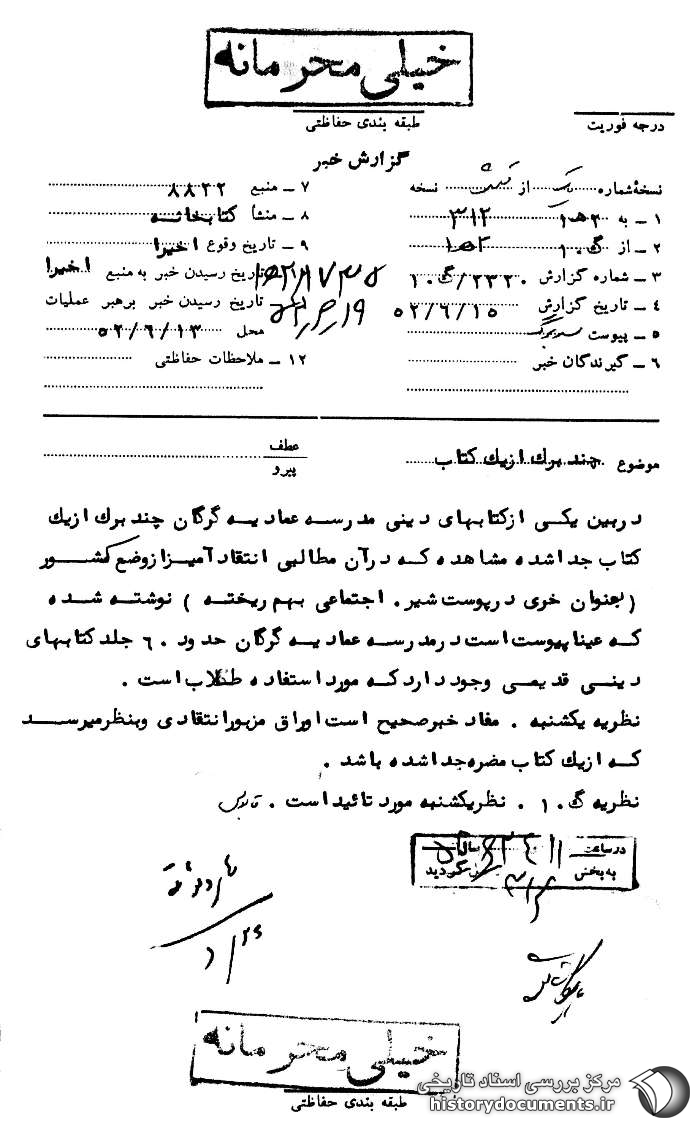 خیلی محرمانه
طبقه بندی حفاظتی
درجه فوریت
گزارش خبر
نسخهٔ شماره یک از نسخه
۱ ـ به ۳۱۲
۲ ـ از گ.۱۰
۳ ـ شماره گزارش ۲۳۲۰/گ.۱۰
۴ ـ تاریخ گزارش ۵۲/۶/۱۵
۵ ـ پیوست
۶ ـ گیرندگان خبر
۷ ـ منبع ۸۸۲۲
۸ ـ منشأ کتابخانه
۹ ـ تاریخ وقوع اخیرا
تاریخ رسیدن خبر به منبع اخیرا
تاریخ رسیدن خبر برهبر عملیات
محل ۵۲/۶/۱۳
۱۲ ـ ملاحظات حفاظتی
موضوع چند برک ازیک کتاب
عطف
پیرو
دربین یکی ازکتابهای دینی مدرسه عمادیه گرگان چند برک ازیک
کتاب جداشده مشاهده که درآن مطالبی انتقادآمیزازوضع کشور
(بعنوان خری درپوست شیر. اجتماعی بهم ریخته ) نوشته شده
که عیناپیوست است درمدرسه عمادیه گرگان حدود ۶۰ جلدکتابهای
دینی قدیمی وجودداردکه مورداستفاده طلاب است .
نظریه یکشنبه . مفاد خبرصحیح است اوراق مزبورانتقادی وبنظرمیرسد
که ازیک کتاب مضره جداشده باشد .
نظریه گ.۱۰ . نظریکشنبه مورد تائیداست .
درساعت
به بخش گردید
خیلی محرمانه
طبقه بندی حفاظتی
مرکز بررسی اسناد تاریخی
historydocuments.ir